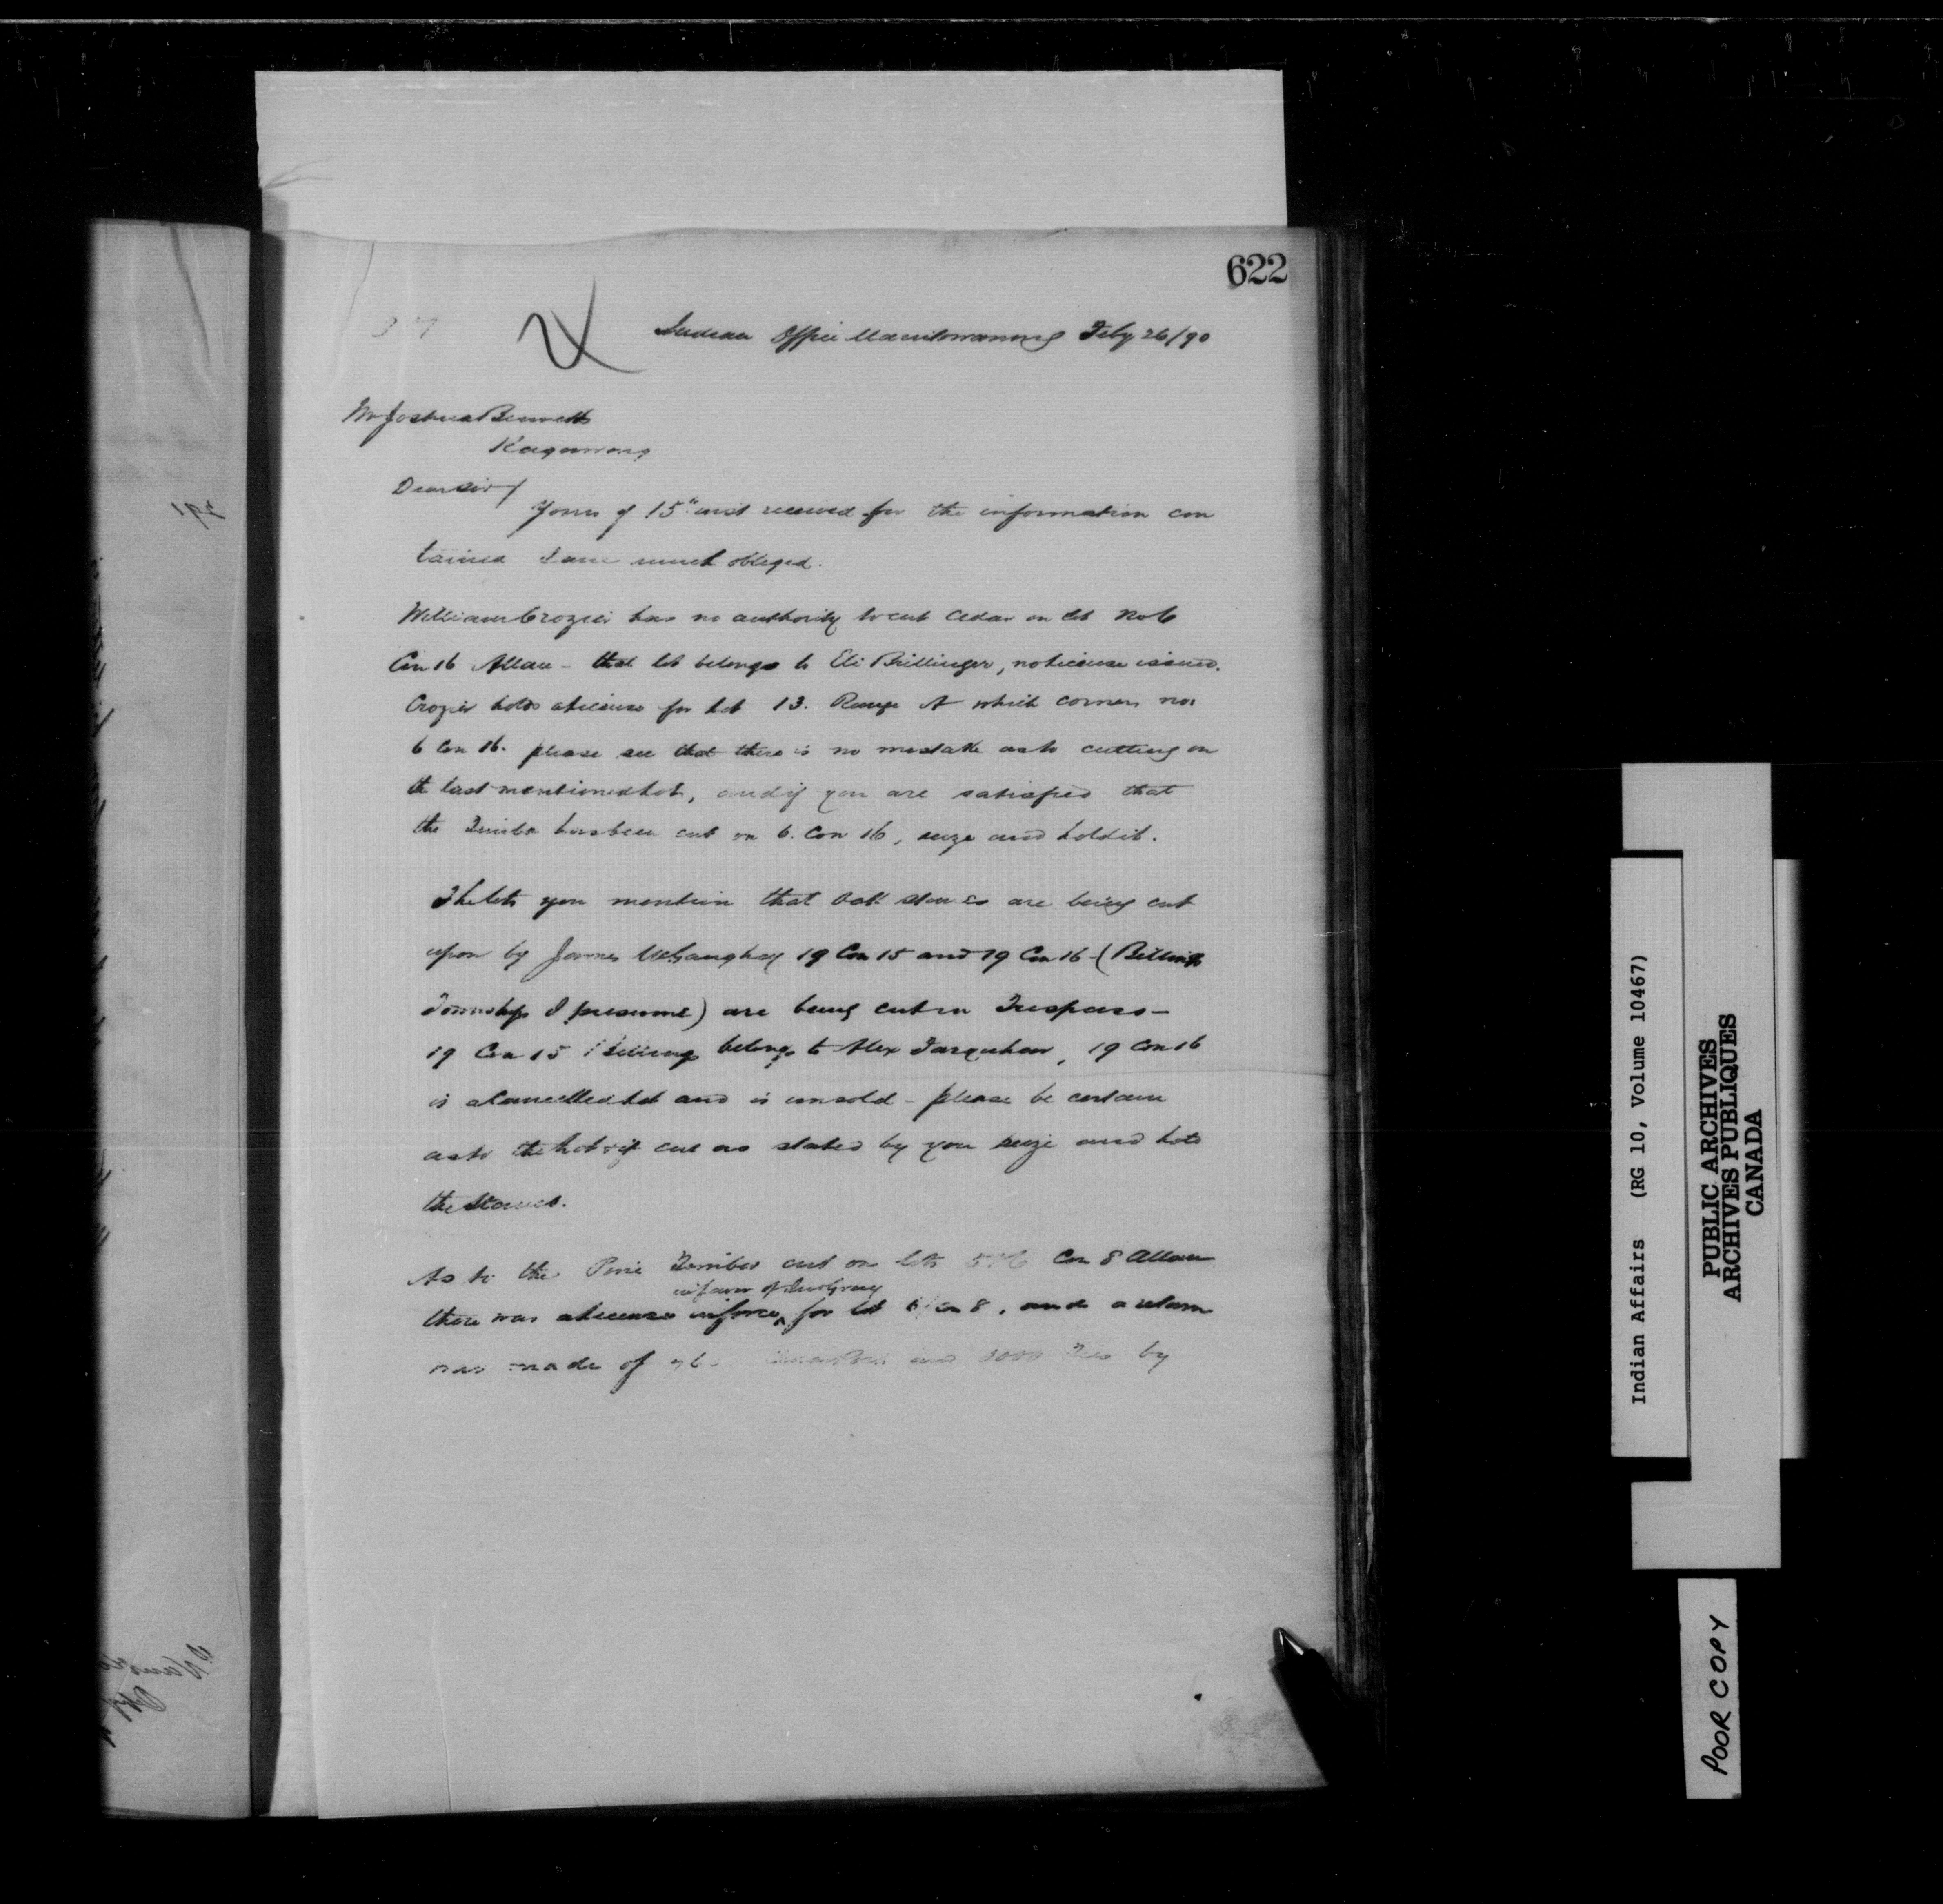 622
Indian Office Manitowaning Feby 26/90
Mr Joshua Bennett
Kagawong
Dear Sir
Yours of 15" inst received for the information con
tained I am much obliged.
William Crozier has no authority to cut Cedar on lot No 6
Con 16 Allan - that lot belongs to Eli Brillinger, no license issued.
Crozier holds a license for Lot 13. Range A which corners no
6 Con 16. please see that there is no mistake as to cutting on
the last mentioned lot, and if you are satisfied that
the Timber has been cut on 6. Con 16, seize and hold it.
The lots you mention that bolt staves are being cut
upon by James McGaughey 19 Con 15 and 19 Con 16 - (Billings
Township I presume) are being cut in Trespass -
19 Con 15 Billings belongs to Alex Farquhar, 19 Con 16
is a Cancelled Lot and is unsold - please be certain
as to the Lot & if cut as stated by you seize and hold
the Staves.
As to the Pine Timber cut on lots 5 & 6 Con 8 Allan
in favor of
there was a license in force for lot 6 Con 8, and a return
was made of and 3000 Ties by
Indian Affairs (RG 10, Volume 10467)
PUBLIC ARCHIVES
ARCHIVES PUBLIQUES
CANADA
POOR COPY